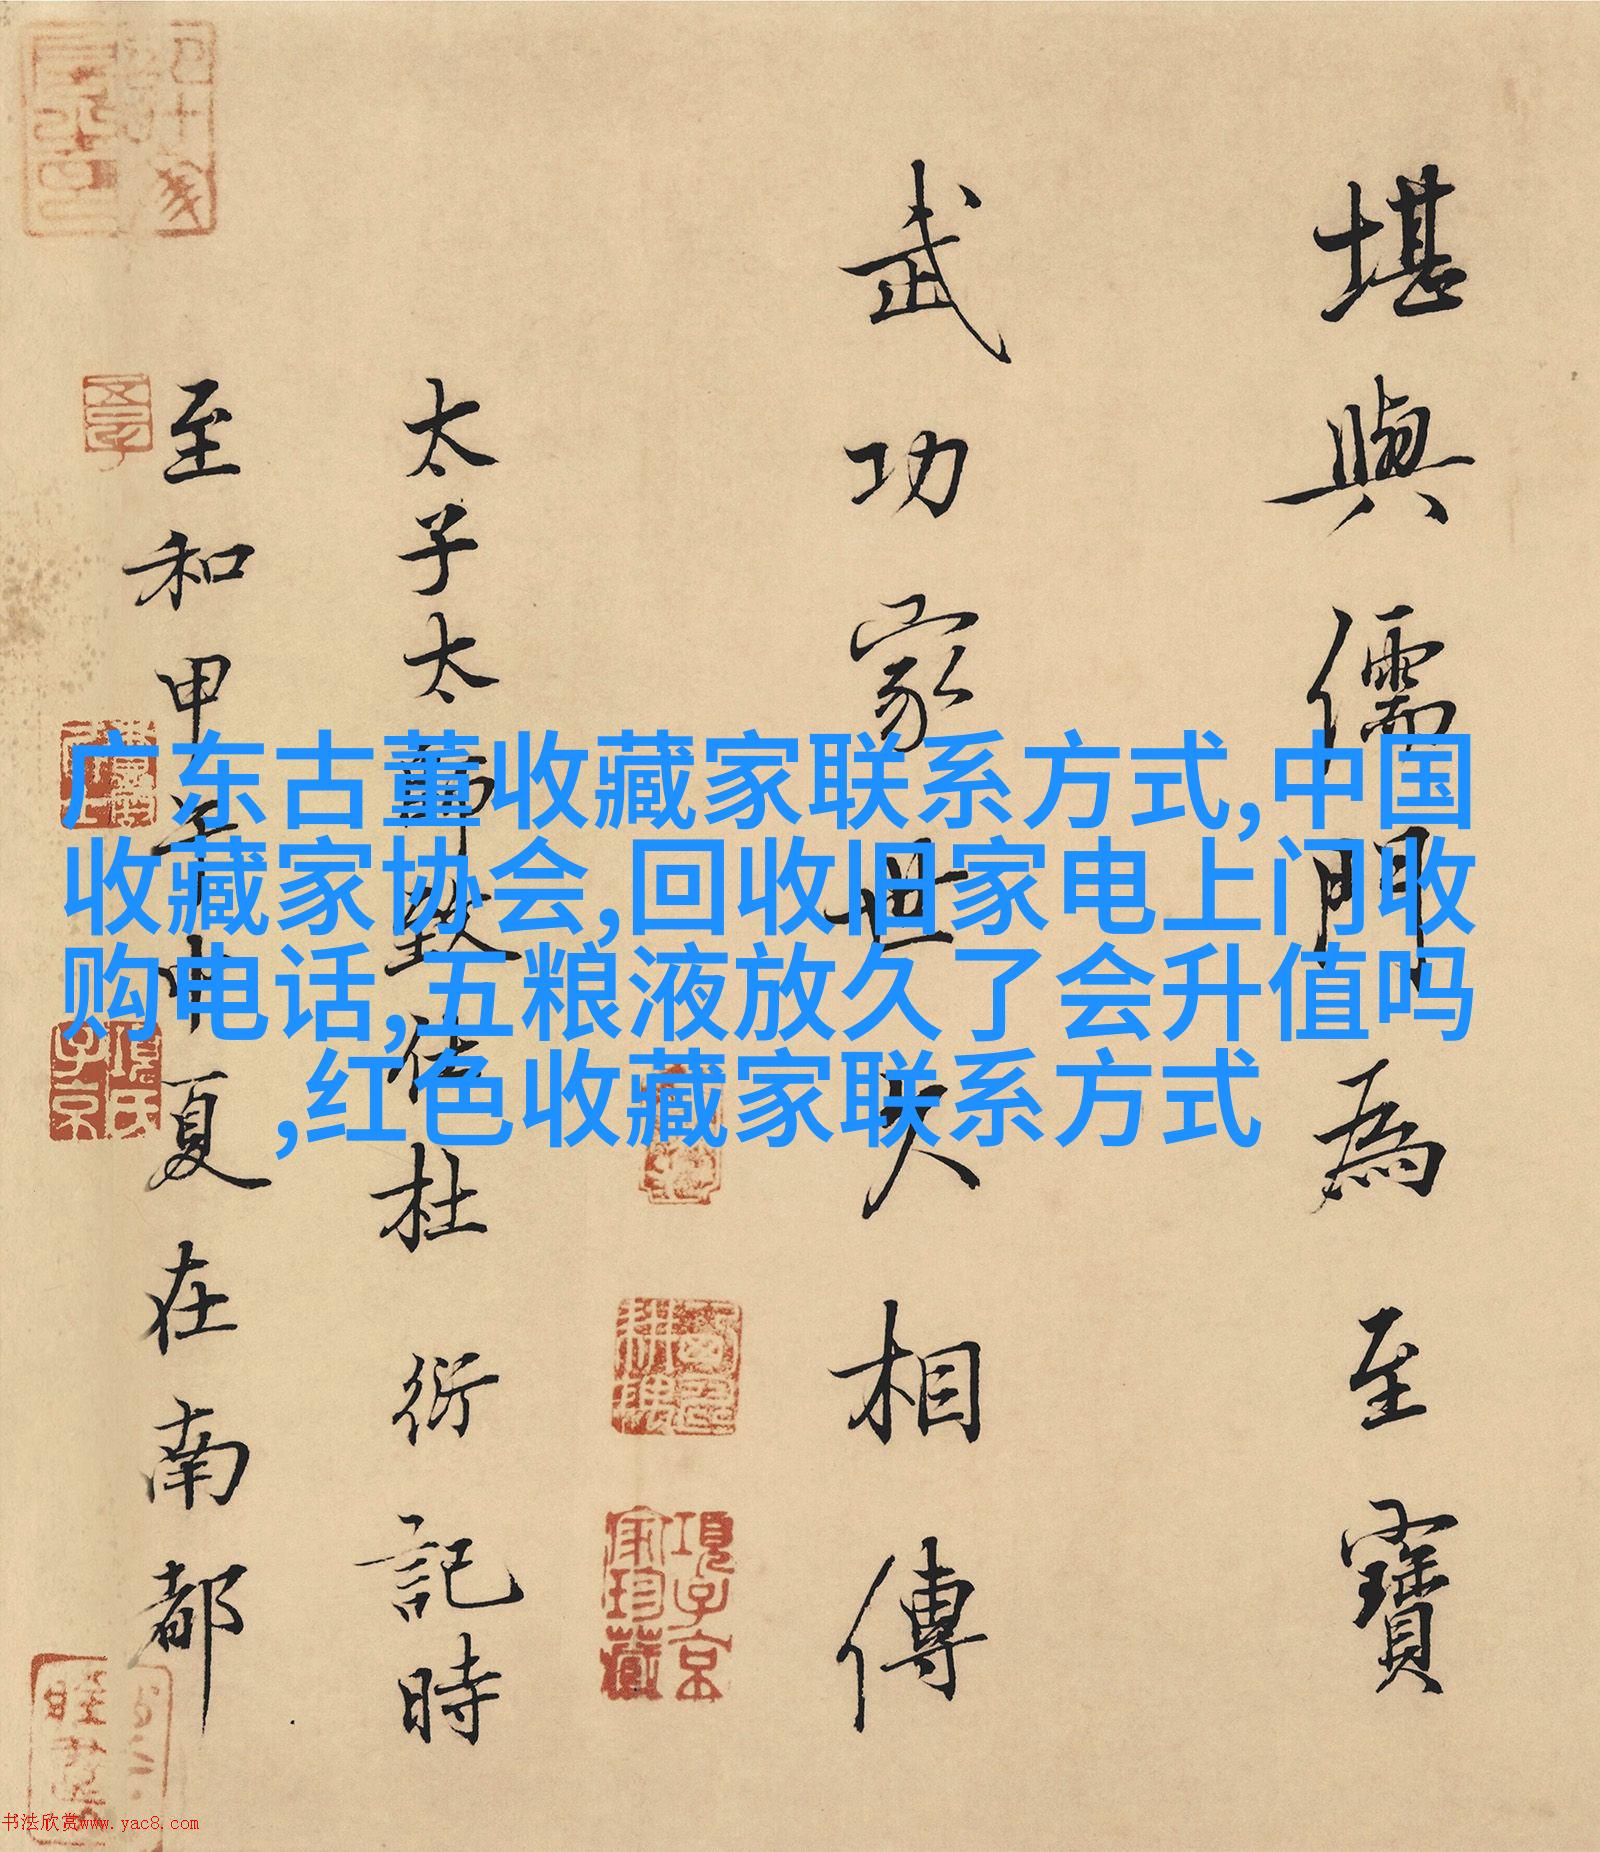 堪輿儒門為至寶
武功家世久相傳
太子太師致仕杜衍記時
至和甲午中夏在南都
广东古董收藏家联系方式,中国
收藏家协会,回收旧家电上门收
购电话,五粮液放久了会升值吗
,红色收藏家联系方式
項子京
家珍藏
項氏
子京
书法欣赏www.yac8.com